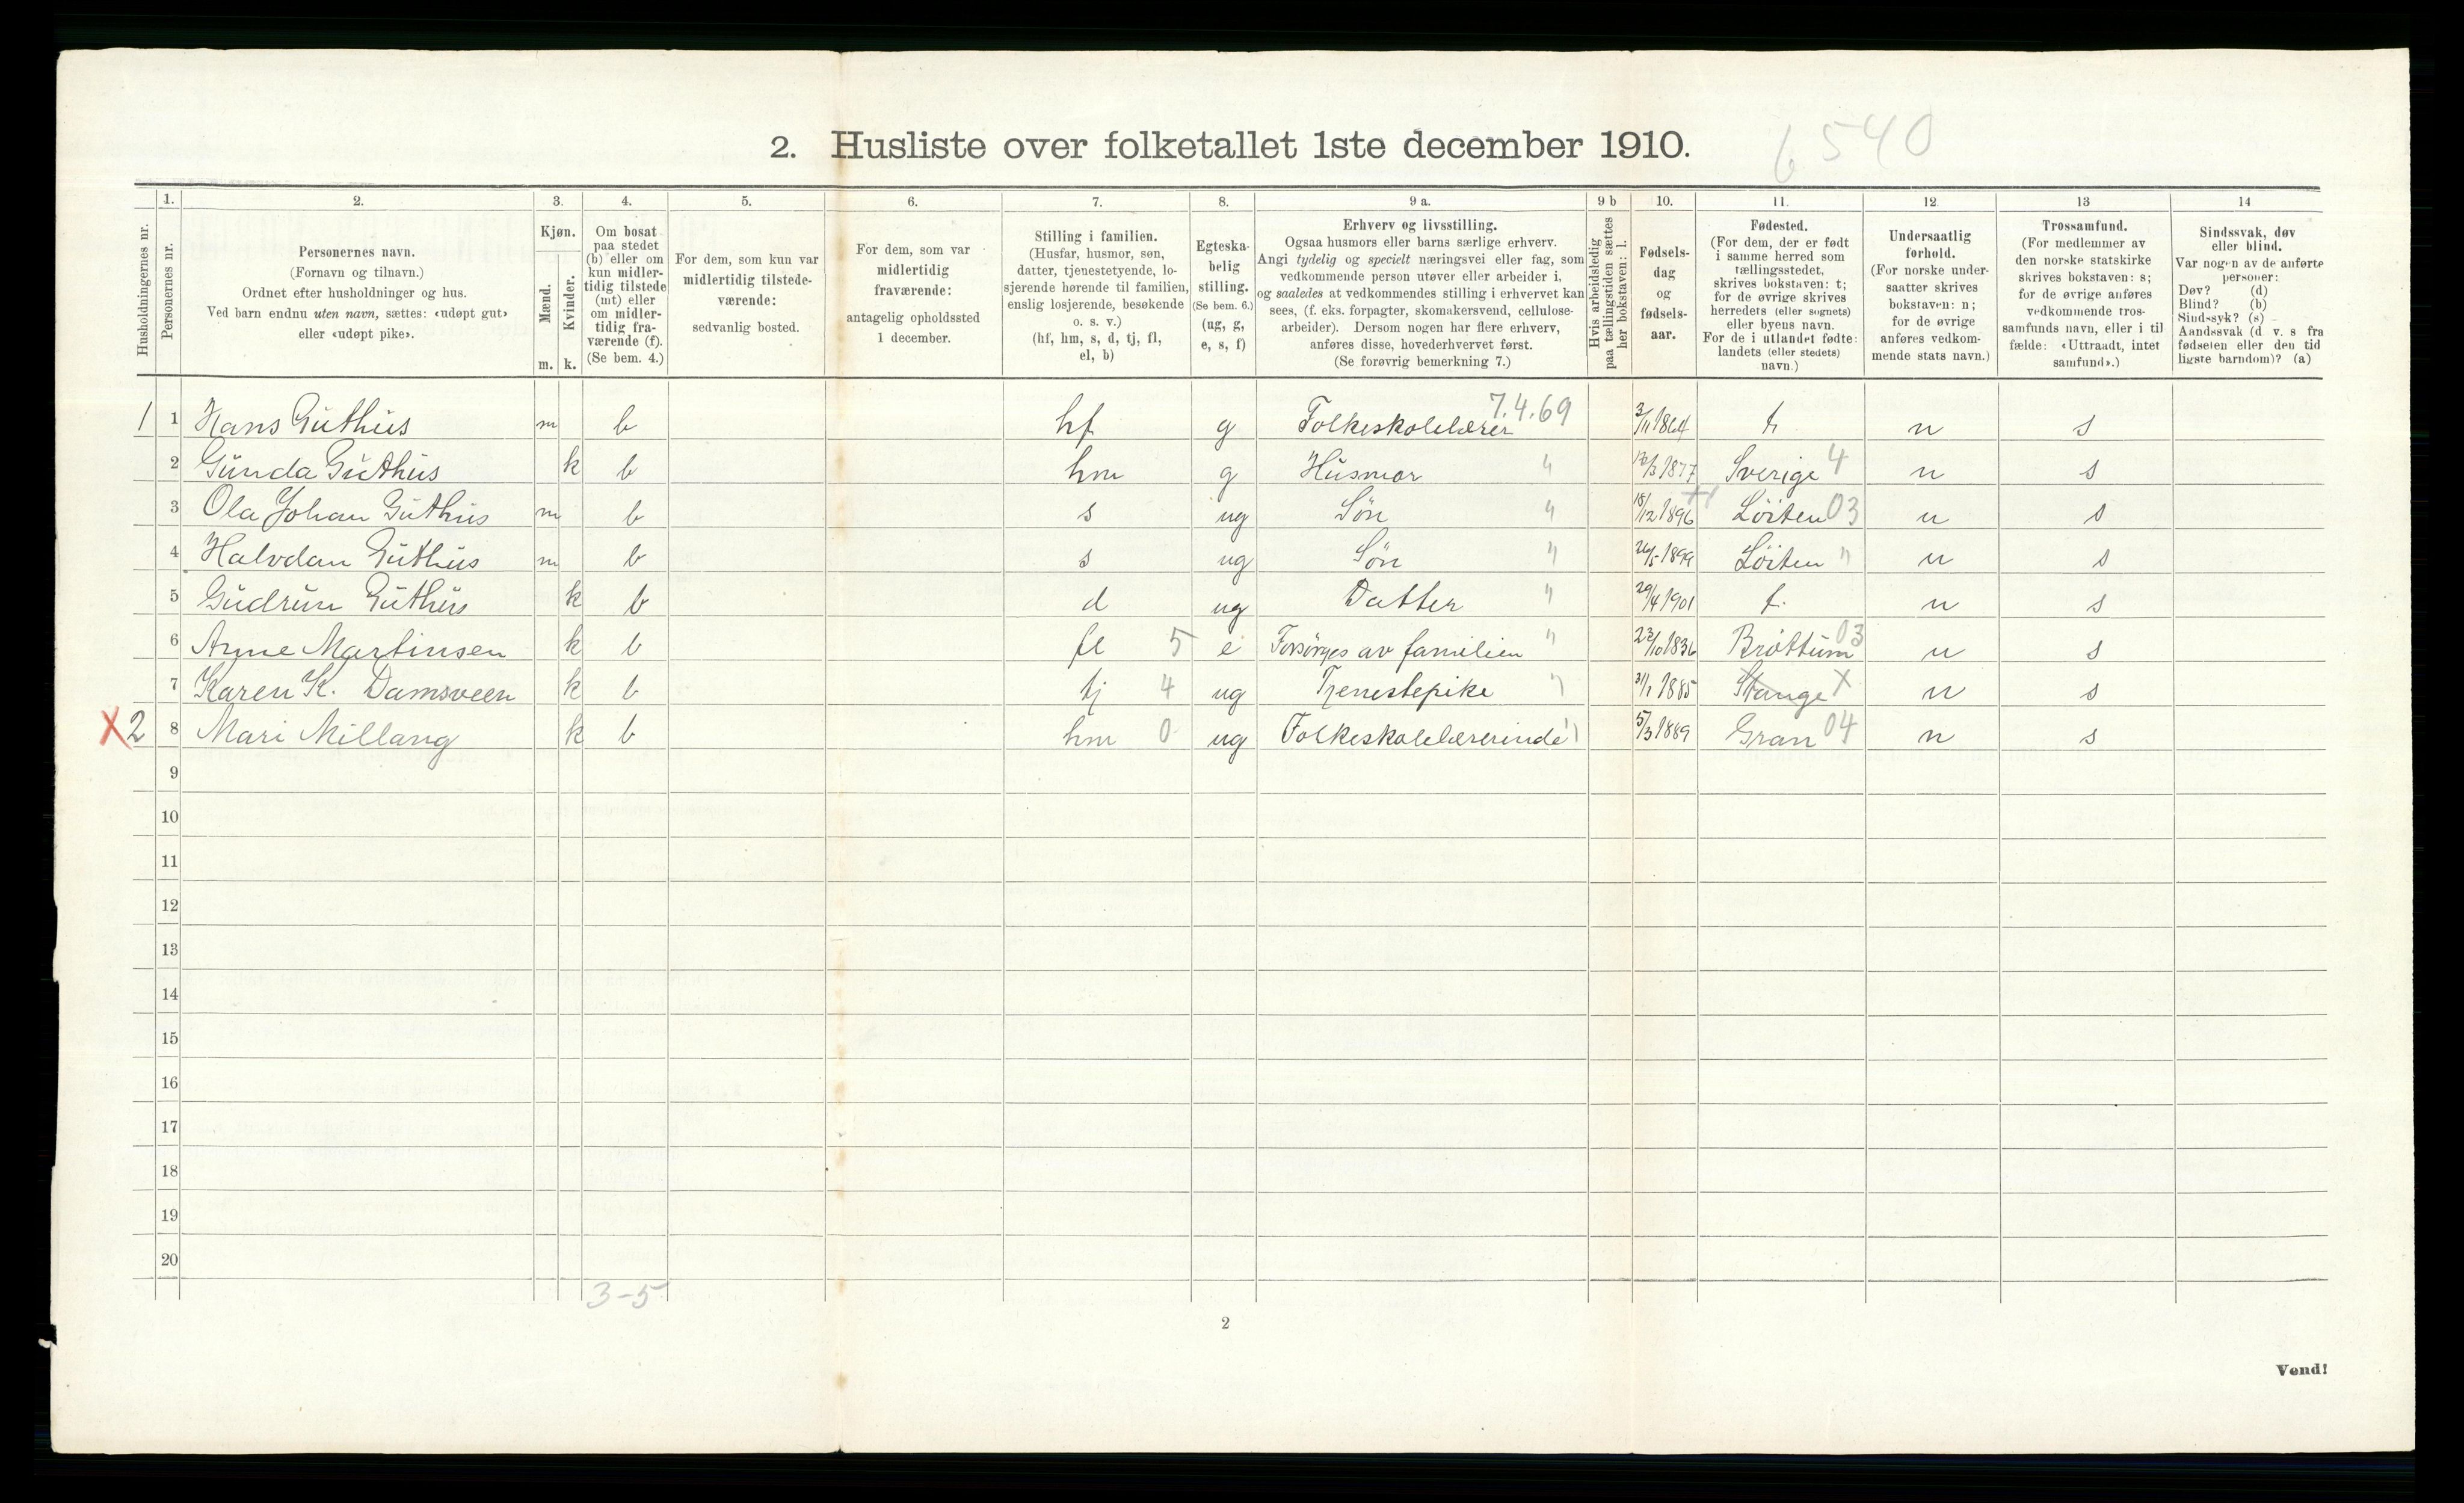 2. Husliste over folketallet 1ste december 1910.
6540
1. 2. 3. 4. 5. 6. 7. 8. 9 a. 9 b 10. 11. 12. 13 14
Husholdningernes nr.
Personernes nr.
Personernes navn.
(Fornavn og tilnavn.)
Ordnet efter husholdninger og hus.
Ved barn endnu uten navn, sættes: «udøpt gut»
eller «udøpt pike».
Kjøn.
Mænd.
Kvinder.
m. k.
Om bosat
paa stedet
(b) eller om
kun midler-
tidig tilstede
(mt) eller
om midler-
tidig fra-
værende (f).
(Se bem. 4.)
For dem, som kun var
midlertidig tilstede-
værende:
sedvanlig bosted.
For dem, som var
midlertidig
fraværende:
antagelig opholdssted
1 december.
Stilling i familien.
(Husfar, husmor, søn,
datter, tjenestetyende, lo-
sjerende hørende til familien,
enslig losjerende, besøkende
o. s. v.)
(hf, hm, s, d, tj, fl,
el, b)
Egteska-
belig
stilling.
(Se bem. 6.)
(ug, g,
e, s, f)
Erhverv og livsstilling.
Ogsaa husmors eller barns særlige erhverv.
Angi tydelig og specielt næringsvei eller fag, som
vedkommende person utøver eller arbeider i,
og saaledes at vedkommendes stilling i erhvervet kan
sees, (f. eks. forpagter, skomakersvend, cellulose-
arbeider). Dersom nogen har flere erhverv,
anføres disse, hovederhvervet først.
(Se forøvrig bemerkning 7.)
Hvis arbeidsledig
paa tællingstiden sættes
her bokstaven: l.
Fødsels-
dag
og
fødsels-
aar.
Fødested.
(For dem, der er født
i samme herred som
tællingsstedet,
skrives bokstaven: t;
for de øvrige skrives
herredets (eller sognets)
eller byens navn.
For de i utlandet fødte:
landets (eller stedets)
navn.)
Undersaatlig
forhold.
(For norske under-
saatter skrives
bokstaven: n;
for de øvrige
anføres vedkom-
mende stats navn.)
Trossamfund.
(For medlemmer av
den norske statskirke
skrives bokstaven: s;
for de øvrige anføres
vedkommende tros-
samfunds navn, eller i til
fælde: «Uttraadt, intet
samfund».)
Sindssvak, døv
eller blind.
Var nogen av de anførte
personer:
Døv? (d)
Blind? (b)
Sindssyk? (s)
Aandssvak (d. v. s. fra
fødselen eller den tid
ligste barndom)? (a)
1 1 Hans Guthus m b hf g Folkeskolelærer 7.4.69 3/11 1864 t. n s
2 Gunda Guthus k b hm g Husmor " /3 1877 Sverige 4 n s
3 Ola Johan Guthus m b s ug Søn " 18/12 1896 Löiten 03 n s
4 Halvdan Guthus m b s ug Søn " 26/5 1899 Löiten " n s
5 Gudrun Guthus k b d ug Datter " 29/4 1901 t. n s
6 Anne Martinsen k b fl 5 e Forsörges av familien " 23/10 1836 Bröttum 03 n s
7 Karen K. Damsveen k b tj 4 ug Tjenestepike " 31/1 1885 Stange X n s
X 2 8 Mari Millang k b hm 0 ug Folkeskolelærerinde " 5/3 1889 Gran 04 n s
9
10
11
12
13
14
15
16
17
18
19
20
3-5
2
Vend!